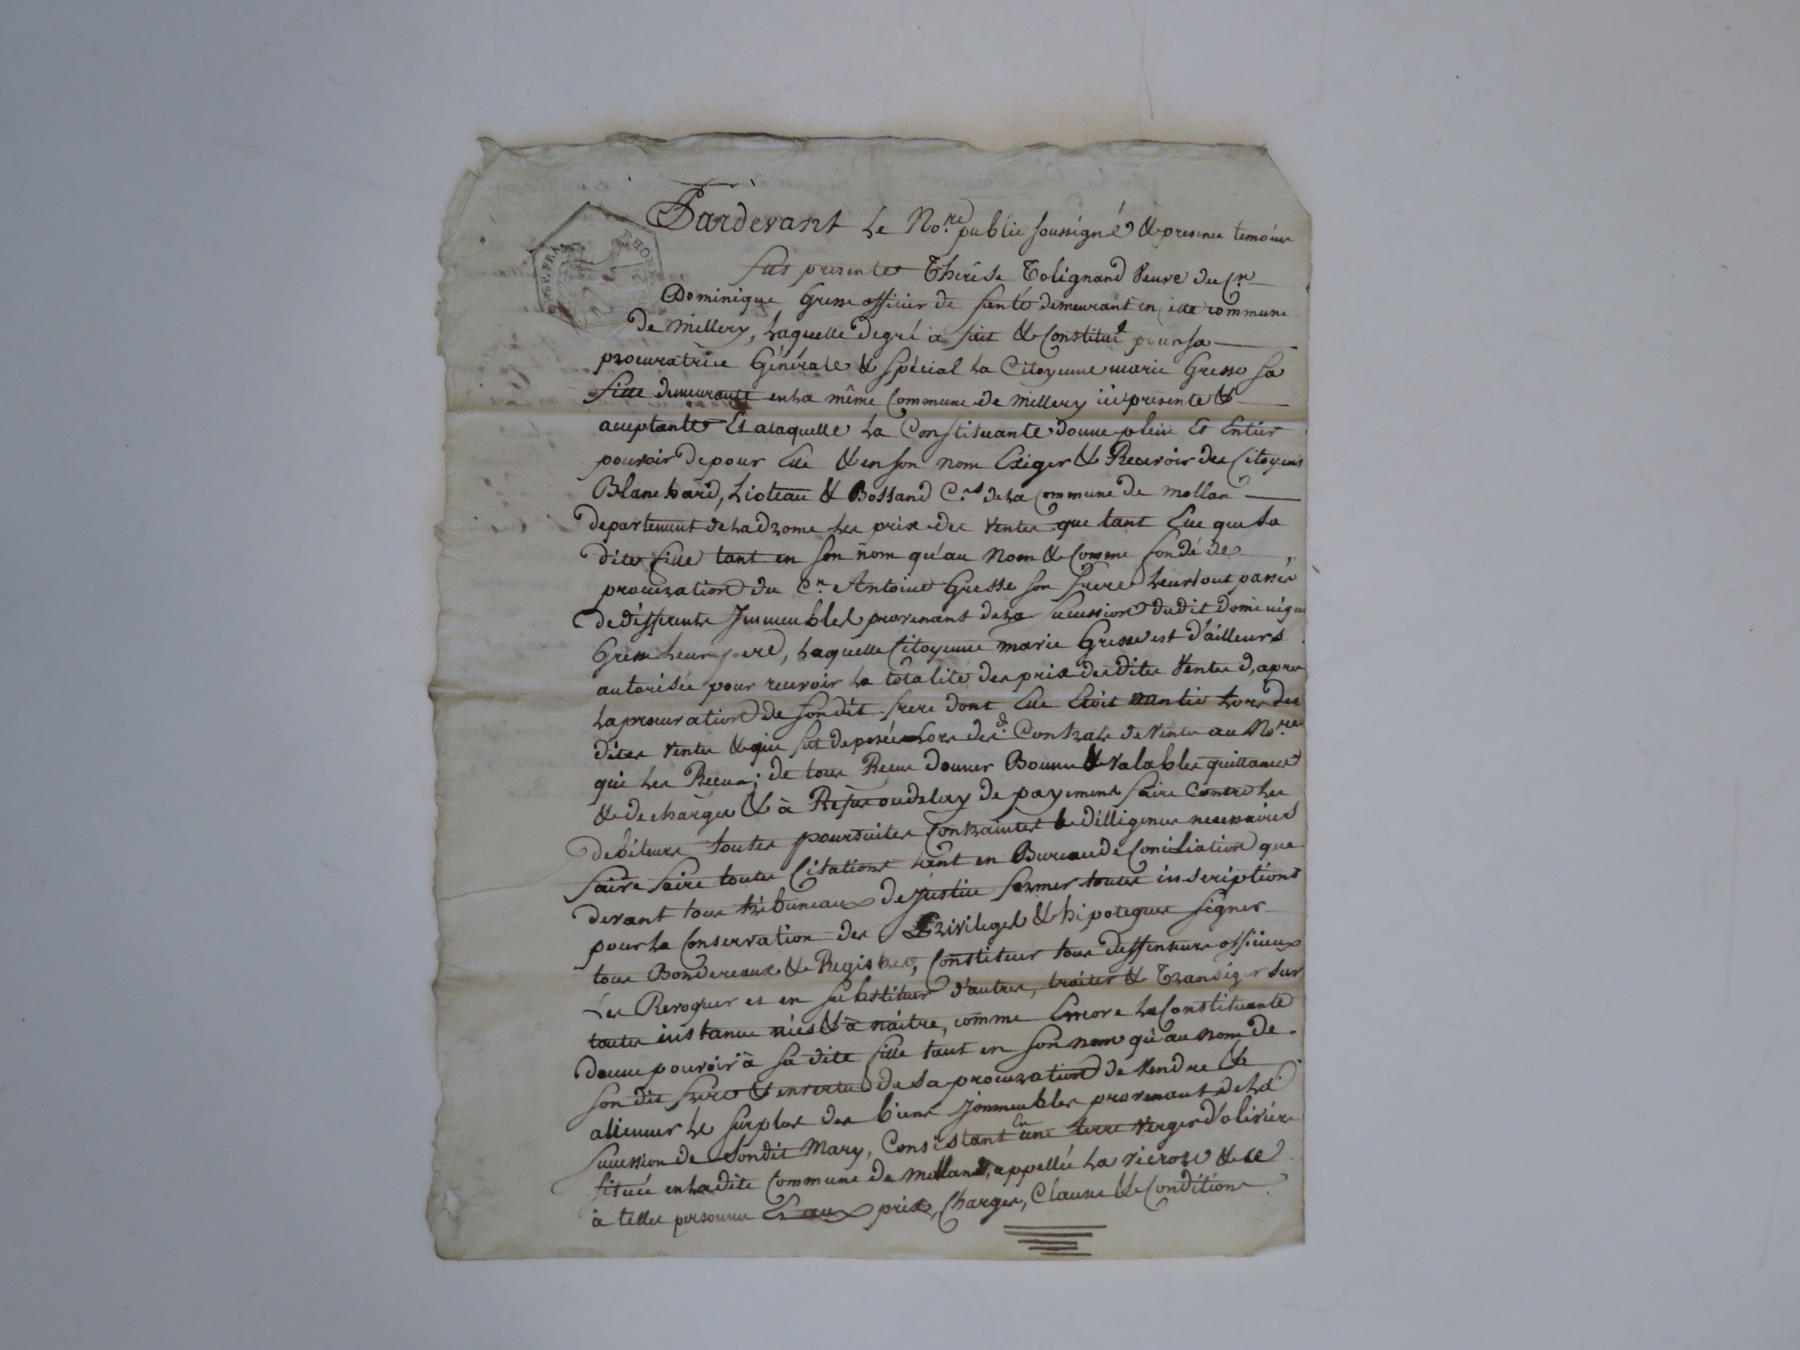 RÉP. FRA RHONE
Pardevant le No.re public soussigné & presence temoins
fut presente Thérèse Tolignand Veuve du C.n
Dominique Gresse officier de santé demeurant en cette commune
de Millery, Laquelle de gré a fait & Constitué pour sa
procuratrice Générale & spécial la Citoyenne marie Gresse sa
fille demeurante en la même Commune de Millery ici presente &
acceptante Et a laquelle la Constituante donne plein Et Entier
pouvoir de pour Elle & en son nom Exiger & Recevoir des Citoyens
Blanchard, Lioteau & Bossand C.ns de la Commune de Mollan
departement de la drome les prix des ventes que tant Elle que sa
dite fille tant en son nom qu'au Nom & Comme fondé de
procuration du C.n Antoine Gresse son frere leur ont passés
de différents Immeubles provenants de la succession dudit dominique
Gresse leur pere, Laquelle Citoyenne marie Gresse est d'ailleurs
autorisée pour recevoir la totalité des prix desdites Ventes d'apres
la procuration de son dit frere dont Elle Etoit nantie lors des
dites Ventes & qui fut deposée lors des d. Contrats de Vente au No.re
qui les Recus; de tous Recus donner Bonne & Valables quittances
& decharges & à Refus ou delay de payement faire Contre les
debiteurs toutes poursuites Contraintes & dilligences necessaires
faire faire toutes Citations tant en Bureau de Conciliation que
devant tous tribuneaux de justice former toutes inscriptions
pour la Conservation des Privileges & hipoteques signer
tous Bordereaux & Registres, Constituer tous deffenseurs officieux
Les Revoquer et en substituer d'autres, traiter & Transiger sur
toutes instances niés & à naitre, comme Encore la Constituante
donne pouvoir à sa dite fille tant en son nom qu'au nom de
son dit frere & en vertu de sa procuration de Vendre &
alienner le surplus des biens Immeubles provenant de la
succession de sondit Mary, Consistant En une terre verger d'olivier
située en ladite Commune de Mollan, appellée la & ce
à telles personnes Et aux prix, Charges, Clauses & Conditions